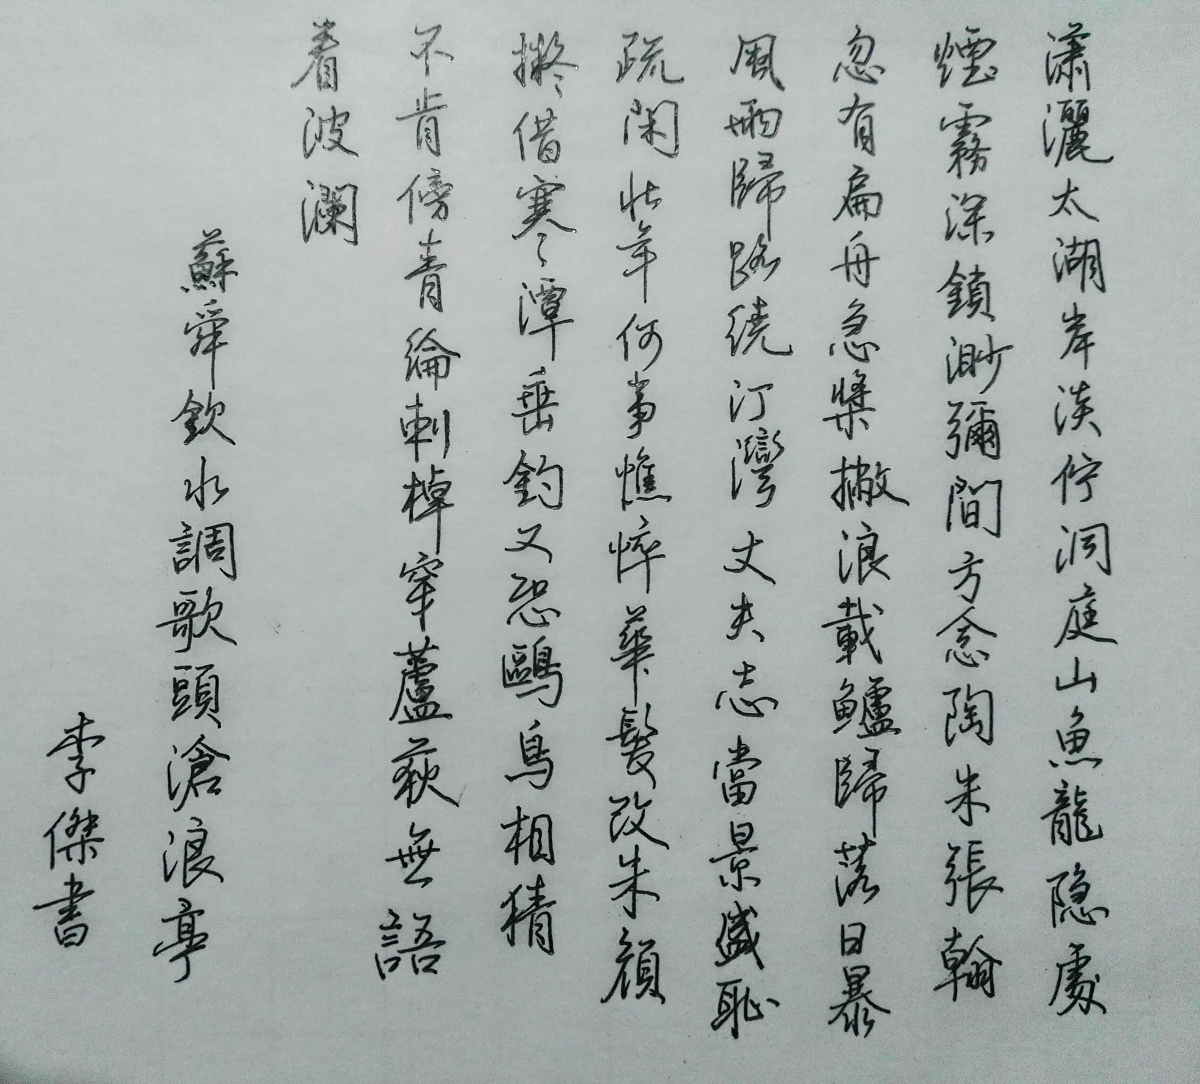 瀟灑太湖岸淡佇洞庭山魚龍隐處
煙霧深鎖渺彌間方念陶朱張翰
忽有扁舟急槳撇浪載鱸歸落日暴
風雨歸路繞汀灣丈夫志當景盛恥
疏閑壯年何事憔悴華髮改朱顔
擬借寒潭垂釣又恐鷗鳥相猜
不肯傍青綸刺棹穿蘆荻無語
看波瀾
蘇舜欽水調歌頭滄浪亭
李傑書